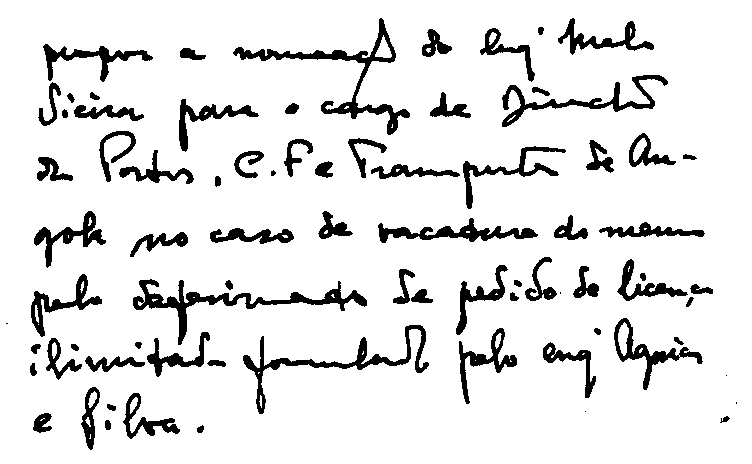 propor a nomeação do eng. Melo
Vieira para o cargo de Director
dos Portos, C. F e Transportes de An-
gola no caso de vacatura do mesmo
pelo deferimento de pedido de licença
ilimitada formulado pelo eng. Aguiar
e Silva.